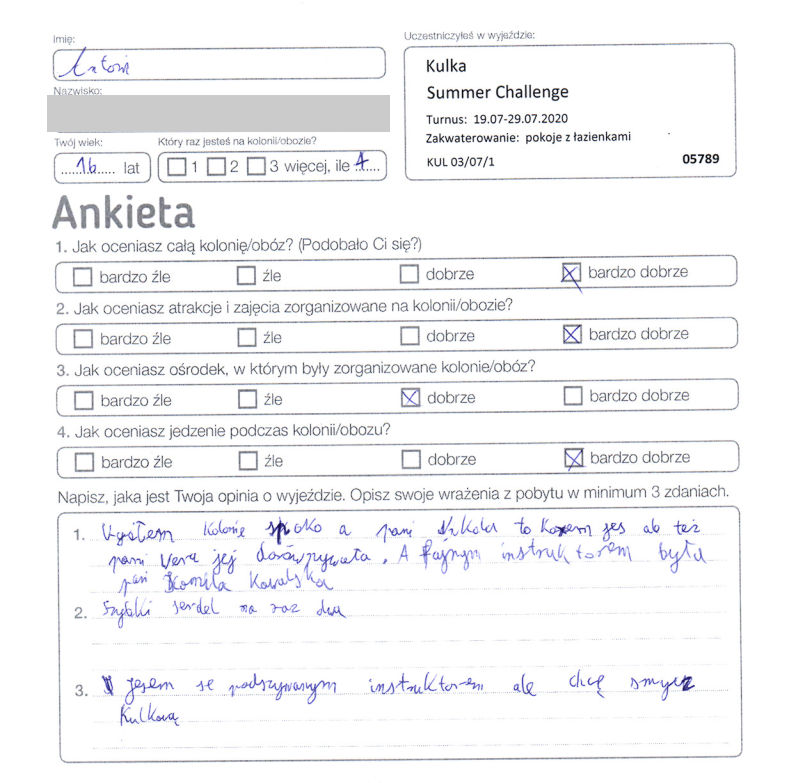 Imię:
Antoni
Nazwisko:
Twój wiek:
16 lat
Który raz jesteś na kolonii/obozie?
1 2 3 więcej, ile 4
Uczestniczyłeś w wyjeździe:
Kulka
Summer Challenge
Turnus: 19.07-29.07.2020
Zakwaterowanie: pokoje z łazienkami
KUL 03/07/1 05789
Ankieta
1. Jak oceniasz całą kolonię/obóz? (Podobało Ci się?)
bardzo źle źle dobrze bardzo dobrze
2. Jak oceniasz atrakcje i zajęcia zorganizowane na kolonii/obozie?
bardzo źle źle dobrze bardzo dobrze
3. Jak oceniasz ośrodek, w którym były zorganizowane kolonie/obóz?
bardzo źle źle dobrze bardzo dobrze
4. Jak oceniasz jedzenie podczas kolonii/obozu?
bardzo źle źle dobrze bardzo dobrze
Napisz, jaka jest Twoja opinia o wyjeździe. Opisz swoje wrażenia z pobytu w minimum 3 zdaniach.
1. kolonię spoko a pani to jes ale też
pani Vera jej dorównywała. A fajnym instruktorem była
pani Kamila Kowalska
2. Szybki serdel na raz dwa
3. jesem se podszywanym instruktorem ale chcę smycz
Kulkową